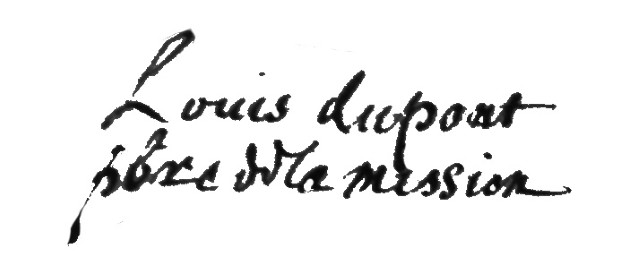 Louis dupont
pbre de la mission